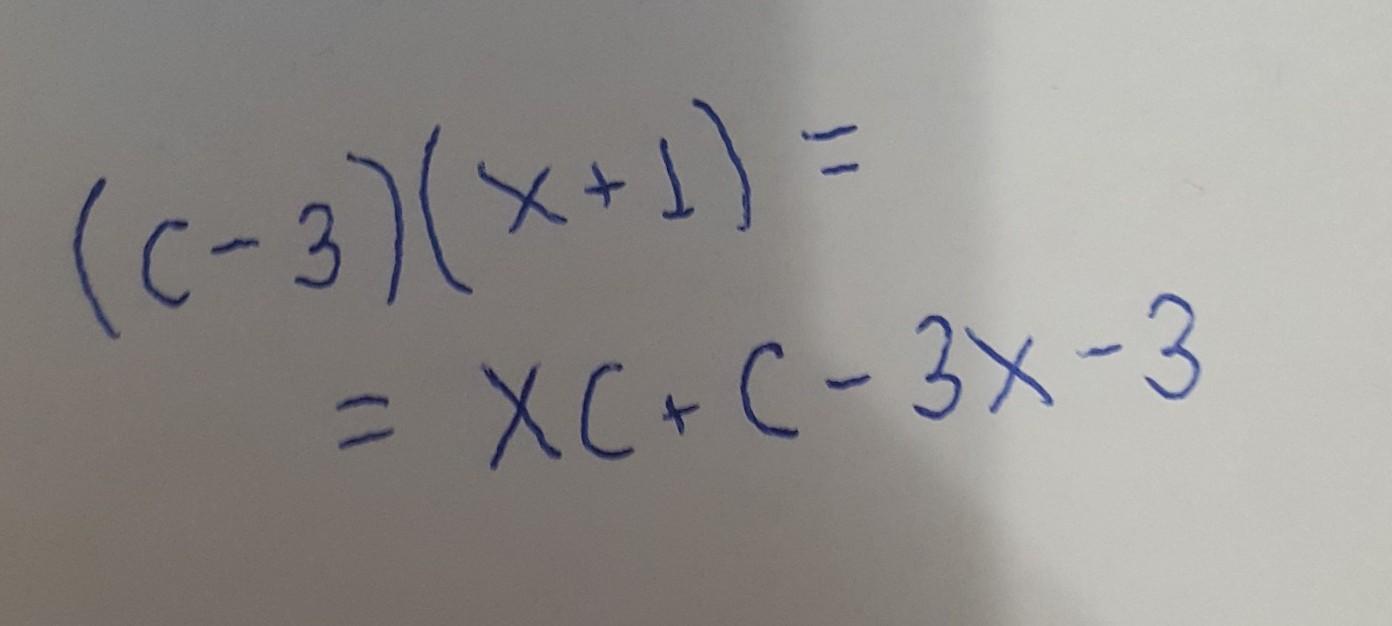 (c-3)(x+1)=
= xc+c-3x-3